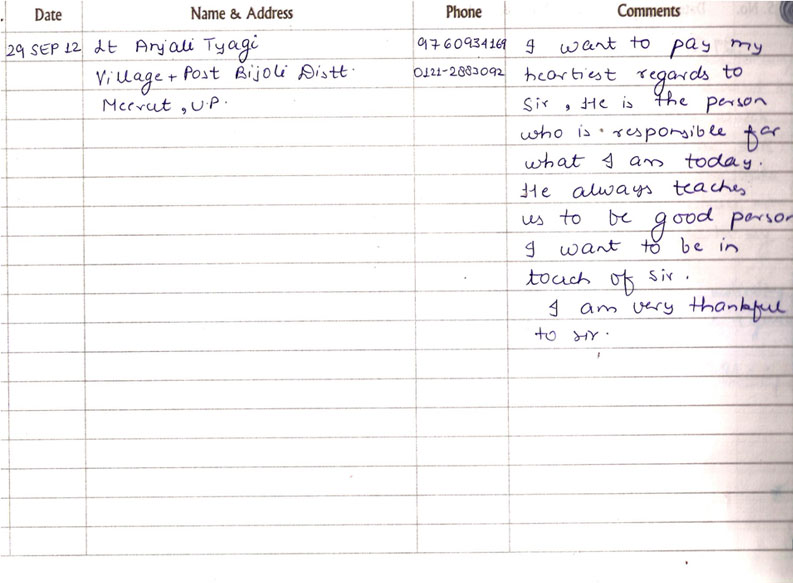 Date Name & Address Phone Comments
29 SEP 12 Lt Anjali Tyagi 9760934169 I want to pay my
Village + Post Bijoli Distt. 0121-2883092 heartiest regards to
Meerut, U.P. Sir, He is the person
who is responsible for
what I am today.
He always teaches
us to be good person
I want to be in
touch of Sir.
I am very thankful
to sir.